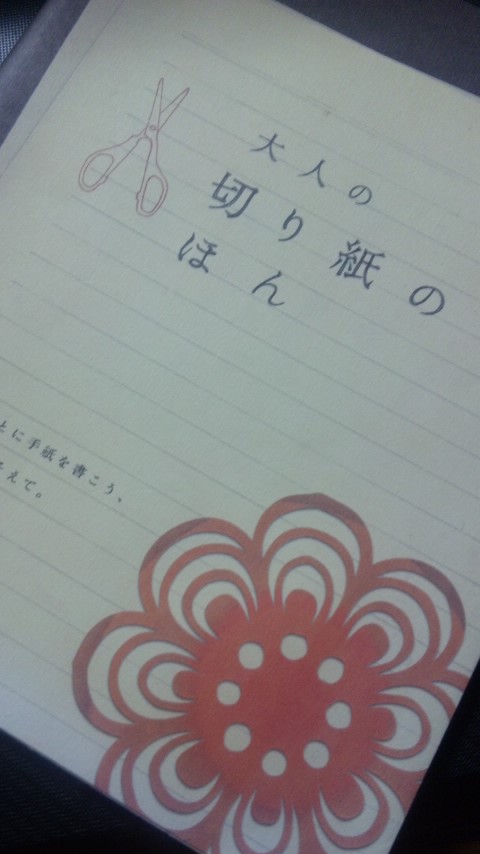 大人の
切り紙の
ほん
とに手紙を書こう、
えて。